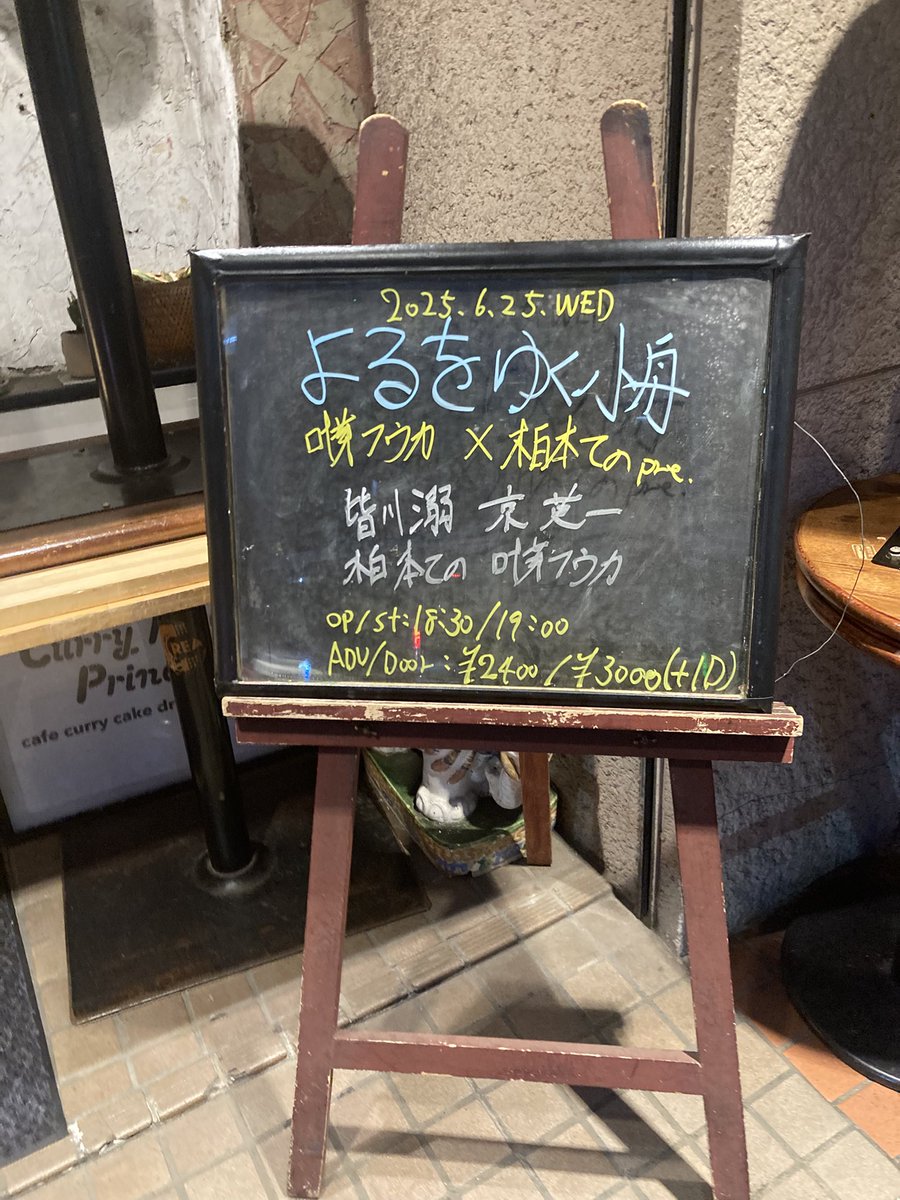 2025.6.25.WED
よるをゆく小舟
嘆フウカ × 柏本てのpre.
皆川溺 京 英一
柏本ての 嘆フウカ
op/st:18:30/19:00
ADV/Door:¥2400/¥3000(+1D)
Curry,
Prin
cafe curry cake dr